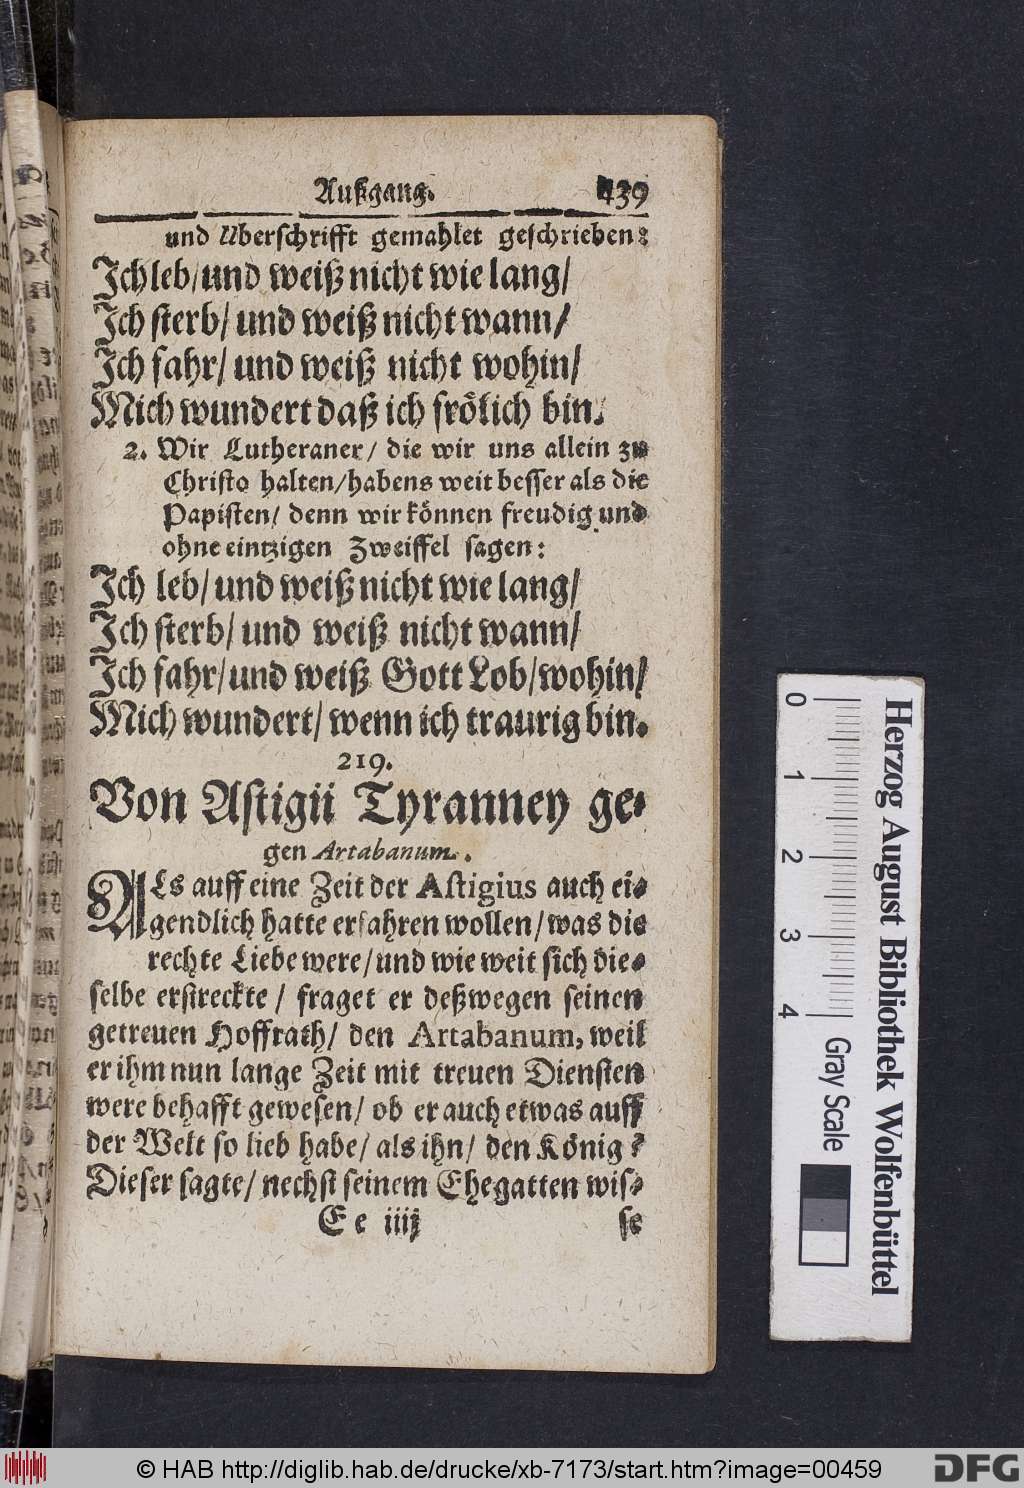 Außgang. 439
und Uberschrifft gemahlet geschrieben:
Ich leb/und weiß nicht wie lang/
Ich sterb/ und weiß nicht wann/
Ich fahr/ und weiß nicht wohin/
Mich wundert daß ich frölich bin.
2. Wir Lutheraner/ die wir uns allein zu
Christo halten/habens weit besser als die
Papisten/ denn wir können freudig und
ohne eintzigen Zweiffel sagen:
Ich leb/ und weiß nicht wie lang/
Ich sterb/ und weiß nicht wann/
Ich fahr/ und weiß Gott Lob/wohin/
Mich wundert/ wenn ich traurig bin.
219.
Von Astigii Tyranney ge-
gen Artabanum.
ALs auff eine Zeit der Astigius auch ei-
gendlich hatte erfahren wollen/ was die
rechte Liebe were/ und wie weit sich die-
selbe erstreckte/ fraget er deßwegen seinen
getreuen Hoffrath/ den Artabanum, weil
er ihm nun lange Zeit mit treuen Diensten
were behafft gewesen/ ob er auch etwas auff
der Welt so lieb habe/ als ihn/ den König?
Dieser sagte/ nechst seinem Ehegatten wis-
E e iiij se
0 1 2 3 4 Gray Scale
Herzog August Bibliothek Wolfenbüttel
© HAB http://diglib.hab.de/drucke/xb-7173/start.htm?image=00459
DFG